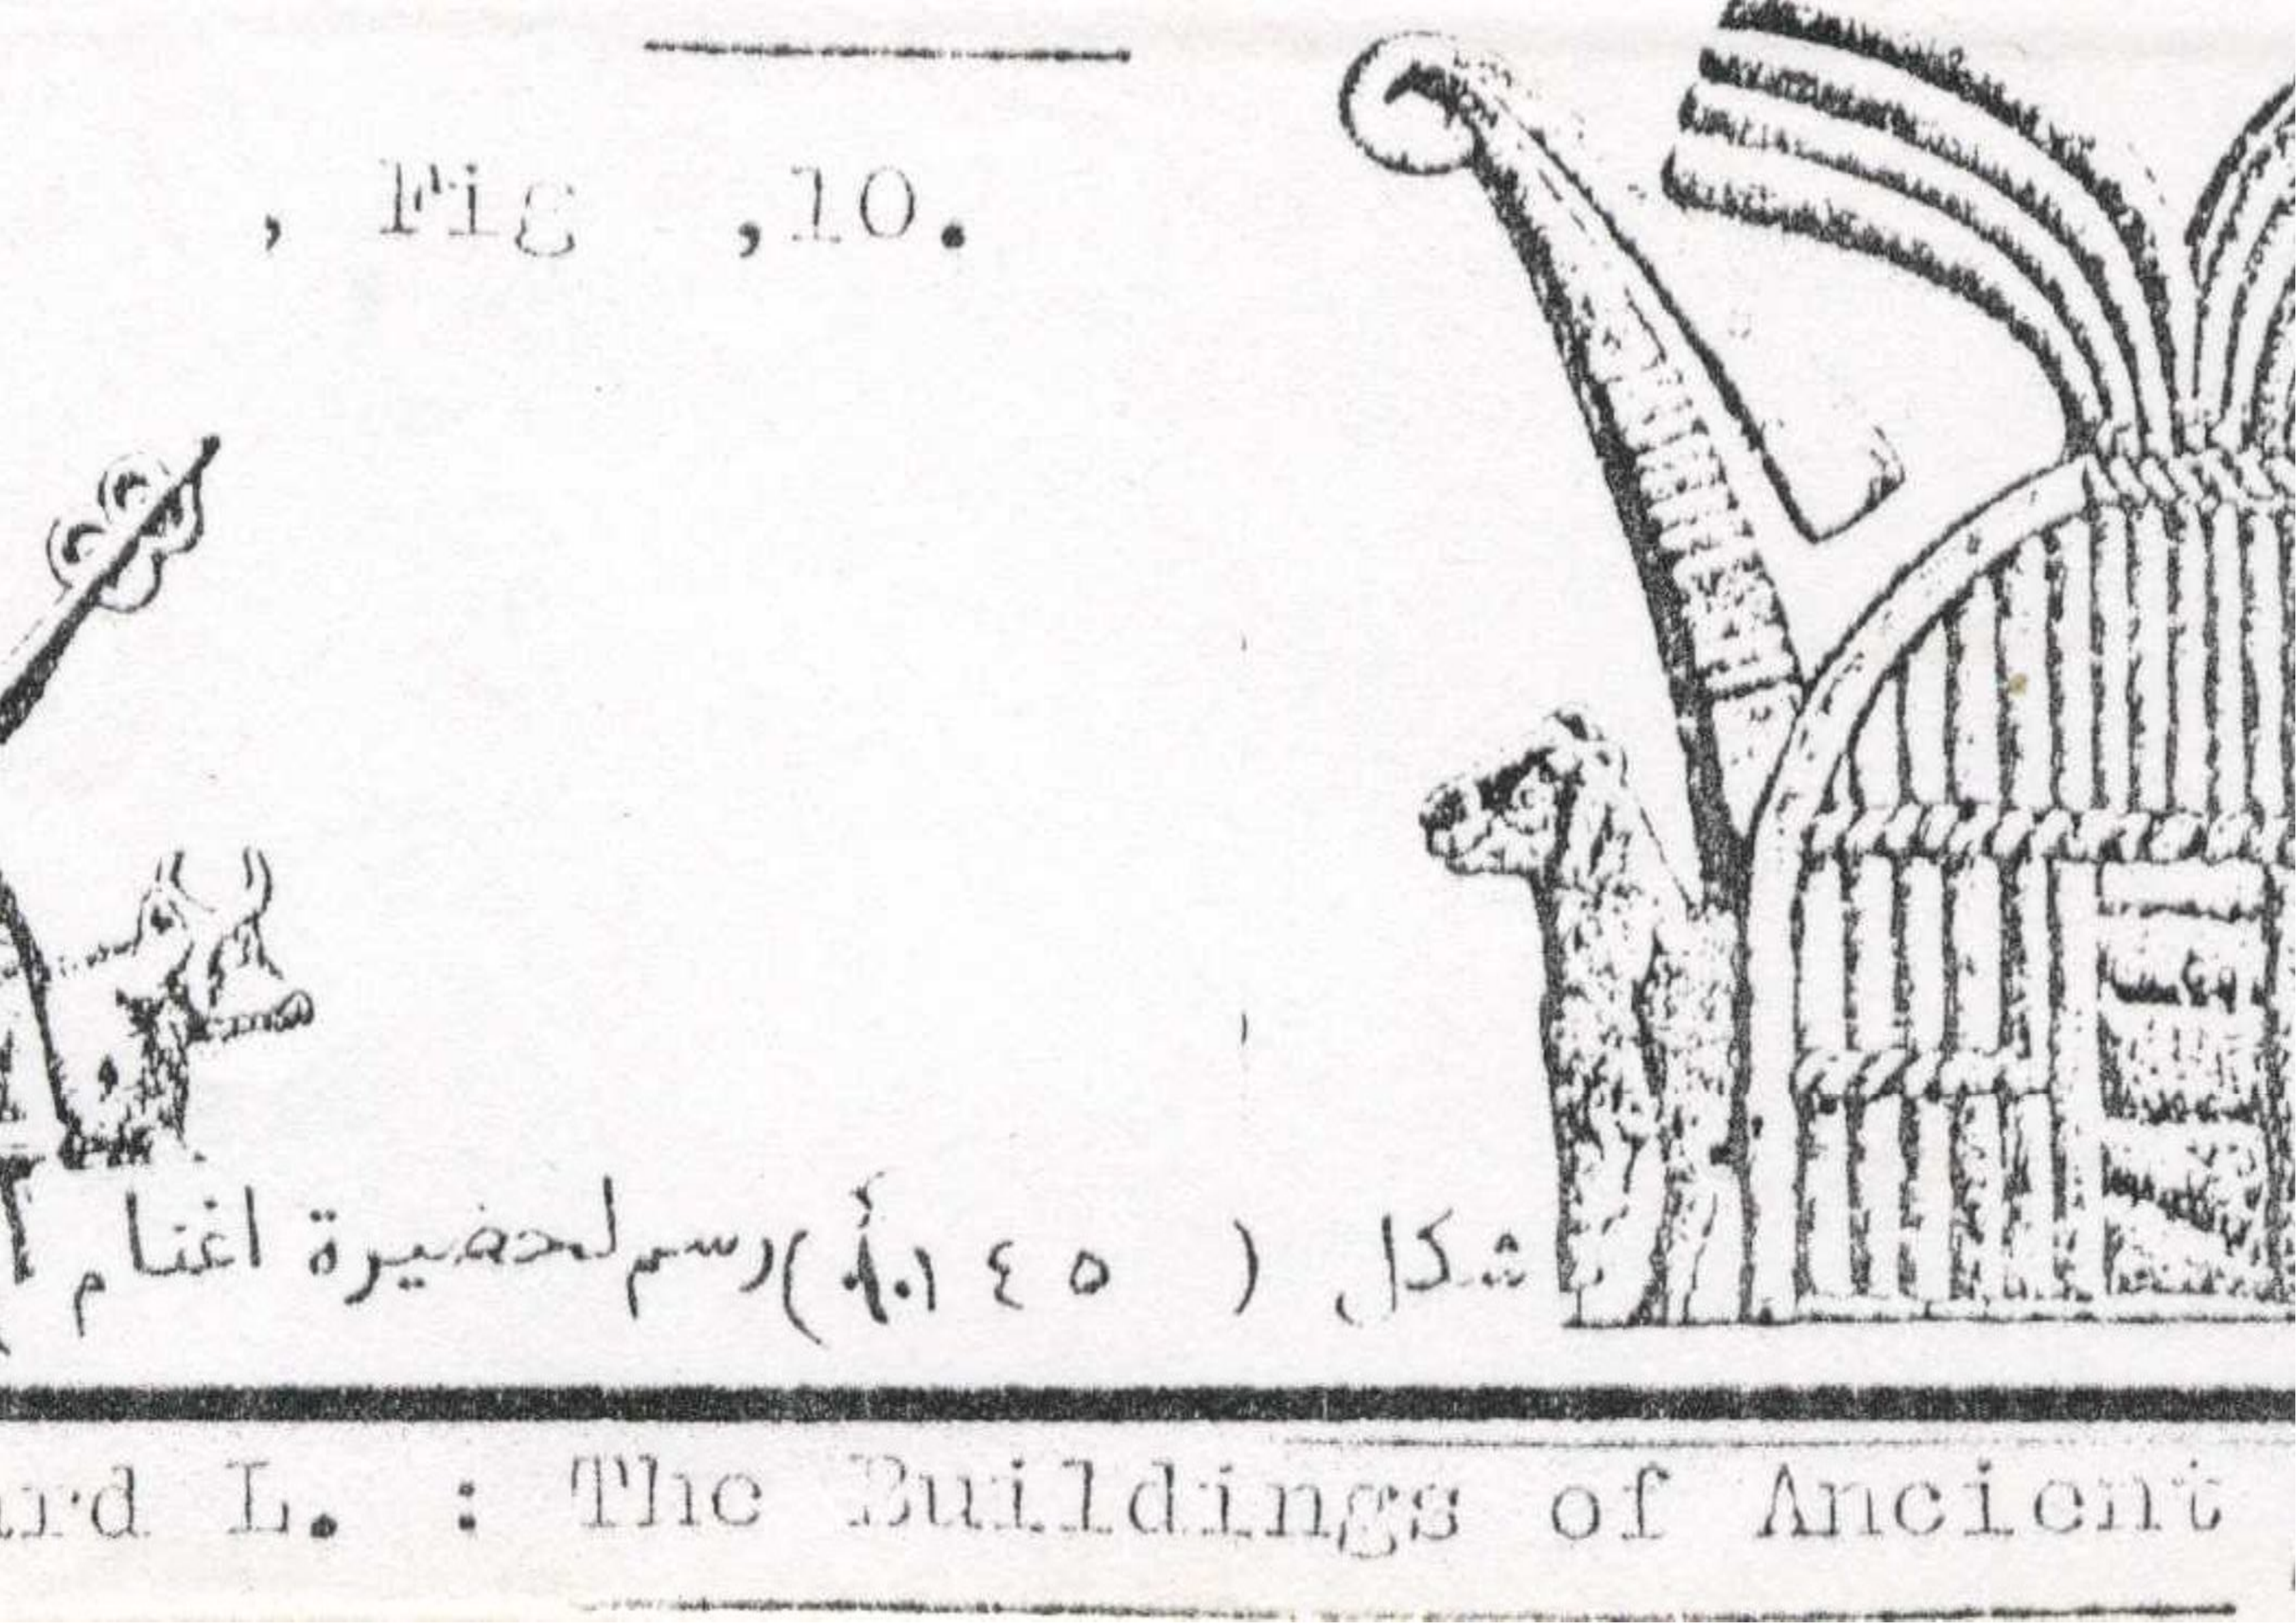 , Fig ,10.
شكل ( ٥ ٤ ١.أ) رسم لحضيرة اغنام
L. : The Buildings of Ancient